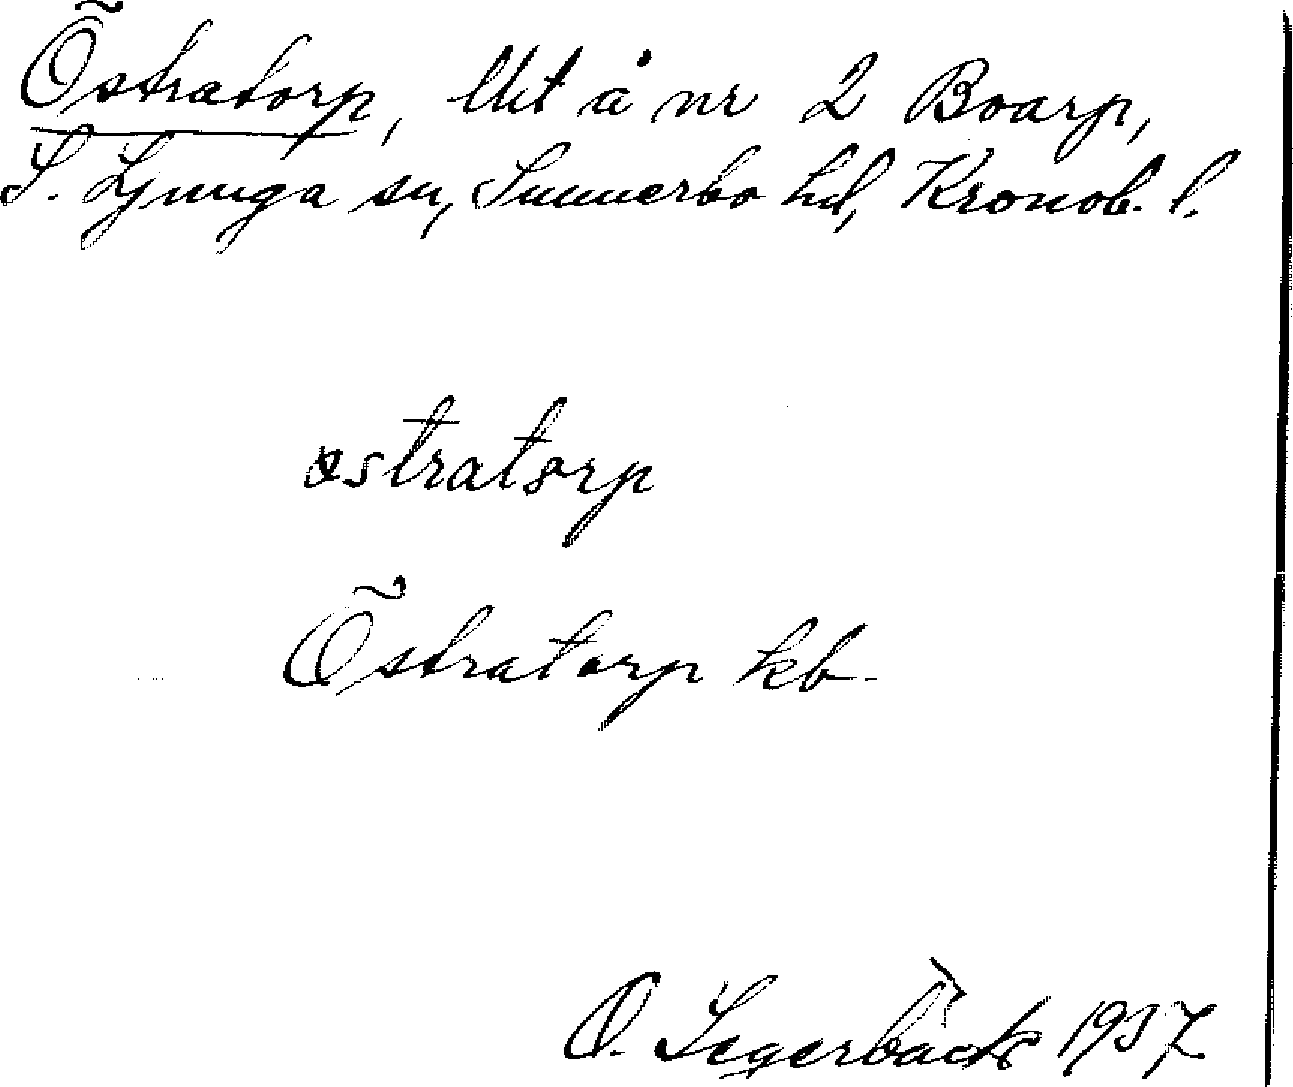 Östratorp, lht å nr 2 Boarp,
S. Ljunga sn, Sunnerbo hd, Kronob. l.
östratorp
Östratorp kb.
O. Segerbäck 1937